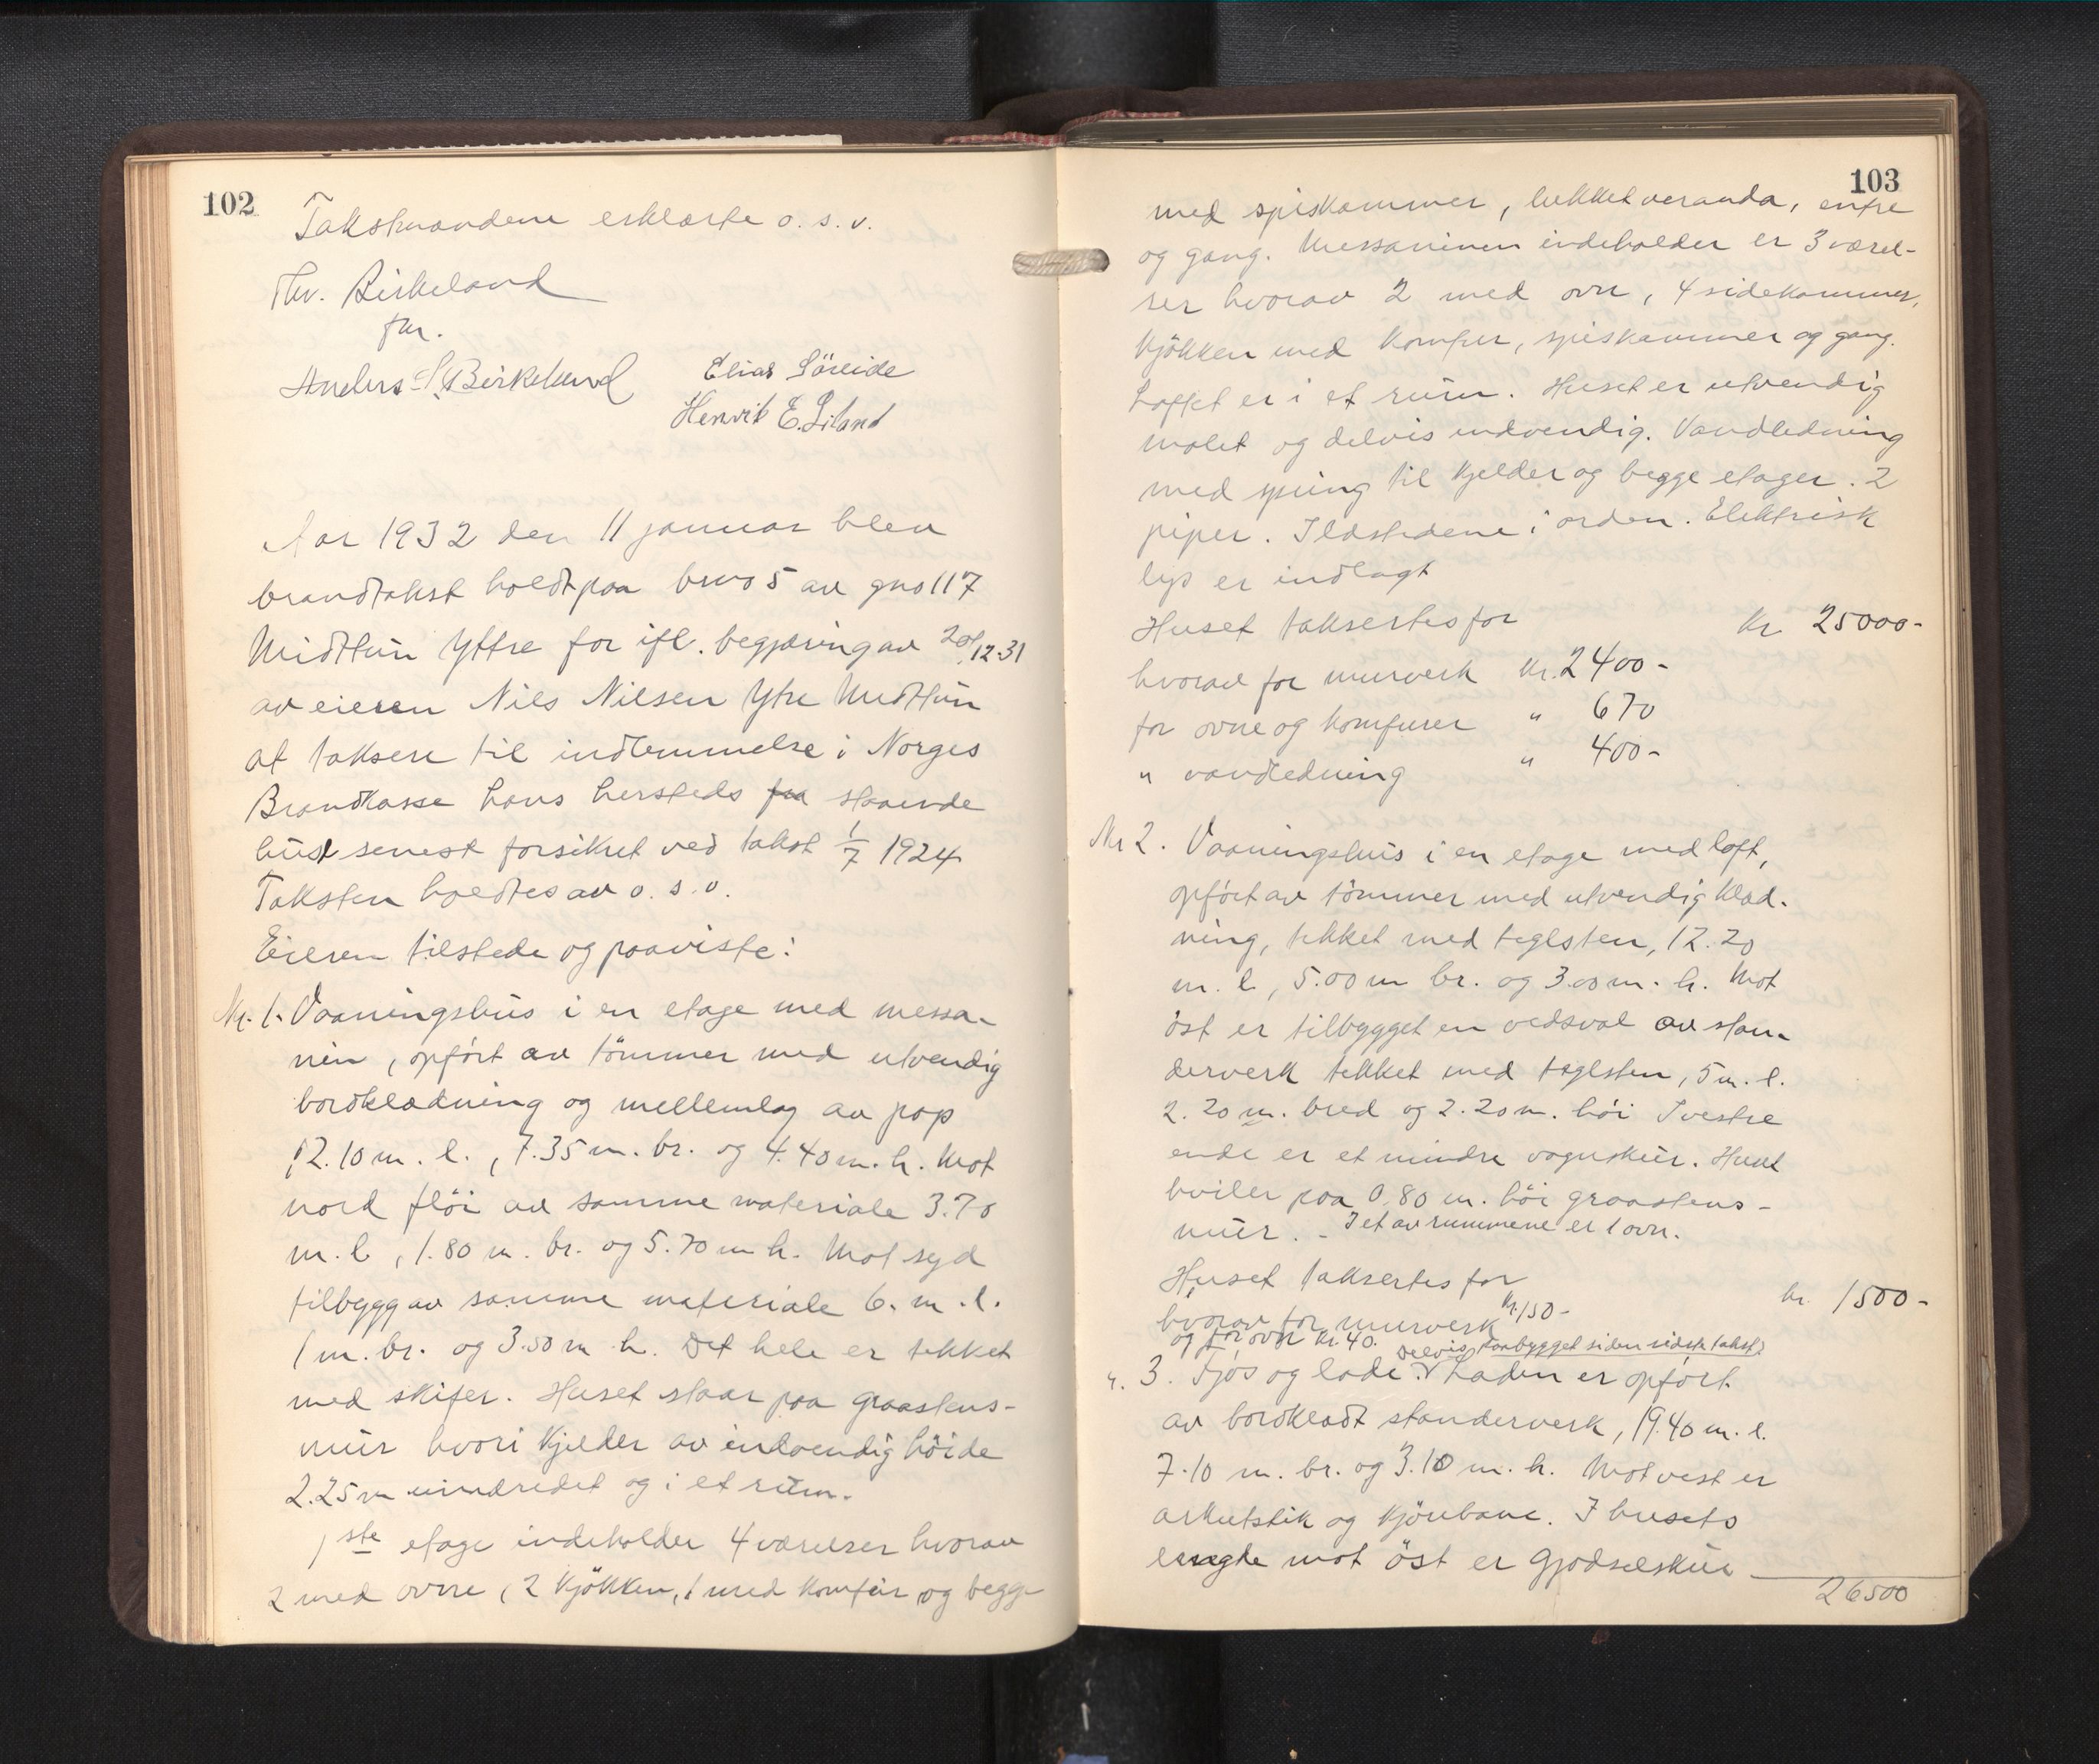 102
Takstmændene erklærte o. s. v.
Thv. Birkeland
fm.
Anders S. Birkeland
Elias Söreide
Henrik E. Liland
Aar 1932 den 11 januar blev
brandtakst holdt paa brno 5 av gno 117
Midttun Yttre for ifl. begjæring av 20/12 31
av eieren Nils Nilsen Ytre Midttun
at taksere til indlemmelse i Norges
Brandkasse hans hersteds staaende
hus senest forsikret ved takst 1/7 1924
Taksten holdtes av o. s. v.
Eieren tilstede og paaviste:
Nr. 1. Vaaningshus i en etage med messa-
nin, opfört av tömmer med utvendig
bordklædning og mellemlag av pap
12.10 m. l., 7.35 m. br. og 4.40 m. h. Mot
nord flöi av samme materiale 3.70
m. l, 1.80 m. br. og 5.70 m h. Mot syd
tilbygg av samme materiale 6. m. l.
1 m. br. og 3.50 m. h. Det hele er tekket
med skifer. Huset staar paa graastens-
mur hvori kjelder av indvendig höide
2.25 m uindredet og i et rum.
1ste etage indeholder 4 værelser hvorav
2 med ovne, 2 kjökken, 1 med komfur og begge
103
med spiskammer, lukket veranda, entre
og gang. Messaninen indeholder er 3 værel-
ser hvorav 2 med ovn, 4 sidekammer,
kjökken med komfur, spiskammer og gang.
Loftet er i et rum. Huset er utvendig
malet og delvis indvendig. Vandledning
med spring til kjelder og begge etager. 2
piper. Ildstedene i orden. Elektrisk
lys er indlagt
Huset taksertes for Kr 25000-
hvorav for murverk Kr. 2400-
for ovne og komfurer " 670
" vandledning " 400-
Nr 2. Vaaningshus i en etage med loft,
opfört av tömmer med utvendig klæd-
ning, tekket med teglsten, 12.20
m. l, 5.00 m br. og 3.00 m. h. Mot
öst er tilbygget en vedsval av stan-
derverk tekket med teglsten, 5 m. l.
2.20 m. bred og 2.20 m. höi I vestre
ende er et mindre vognskur. Huset
hviler paa 0.80 m. höi graastens-
mur. - I et av rummene er 1 ovn.
Huset taksertes for kr. 1500-
hvorav for murverk Kr. 150-
og for ovn kr. 40.
delvis paabygget siden sidste takst.
". 3. Fjös og lade. Laden er opfört
av bordklædt standerverk, 19.40 m. l.
7.10 m. br. og 3.10 m. h. Mot vest er
arkutstik og kjörebane. I husets
længde mot öst er gjödselskur
26500